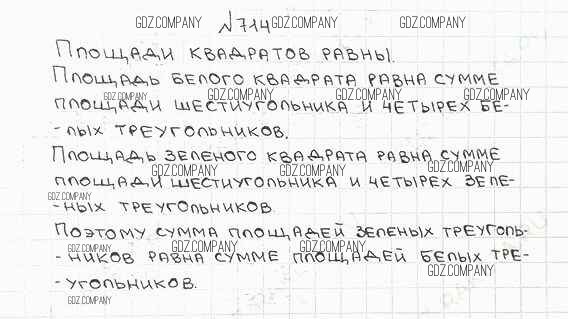 GDZ.COMPANY №714 GDZ.COMPANY GDZ.COMPANY
ПЛОЩАДИ КВАДРАТОВ РАВНЫ.
ПЛОЩАДЬ БЕЛОГО КВАДРАТА РАВНА СУММЕ
GDZ.COMPANY GDZ.COMPANY GDZ.COMPANY GDZ.COMPANY
ПЛОЩАДИ ШЕСТИУГОЛЬНИКА И ЧЕТЫРЕХ БЕ-
-ЛЫХ ТРЕУГОЛЬНИКОВ.
ПЛОЩАДЬ ЗЕЛЕНОГО КВАДРАТА РАВНА СУММЕ
GDZ.COMPANY GDZ.COMPANY GDZ.COMPANY
ПЛОЩАДИ ШЕСТИУГОЛЬНИКА И ЧЕТЫРЕХ ЗЕЛЕ-
GDZ.COMPANY
-НЫХ ТРЕУГОЛЬНИКОВ.
ПОЭТОМУ СУММА ПЛОЩАДЕЙ ЗЕЛЕНЫХ ТРЕУГОЛЬ-
GDZ.COMPANY GDZ.COMPANY GDZ.COMPANY
-НИКОВ РАВНА СУММЕ ПЛОЩАДЕЙ БЕЛЫХ ТРЕ-
GDZ.COMPANY
-УГОЛЬНИКОВ.
GDZ.COMPANY